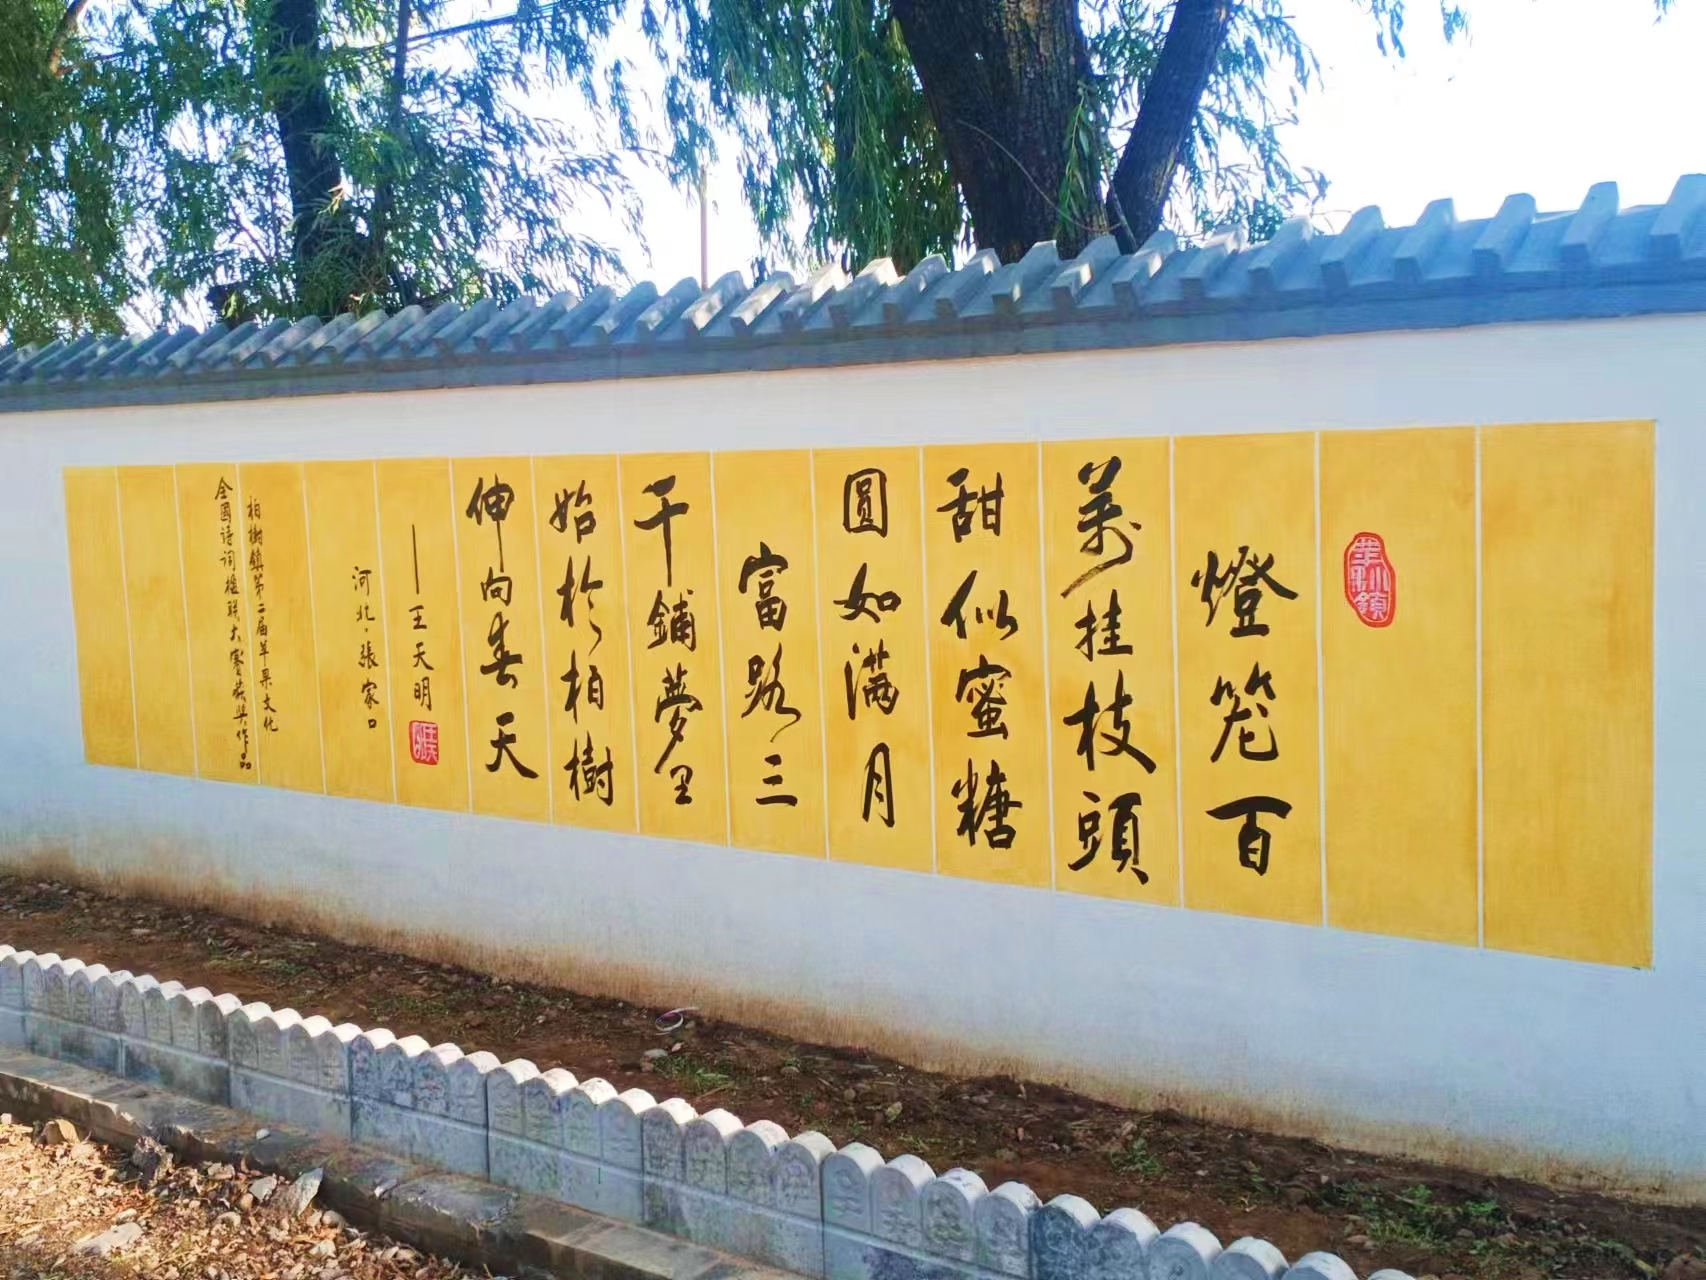 燈笼百
萬挂枝頭
甜似蜜糖
圓如满月
富路三
千鋪夢里
始於柏樹
伸向春天
——王天明
河北·張家口
柏樹鎮第二届苹果文化
全國诗词楹联大赛获奖作品